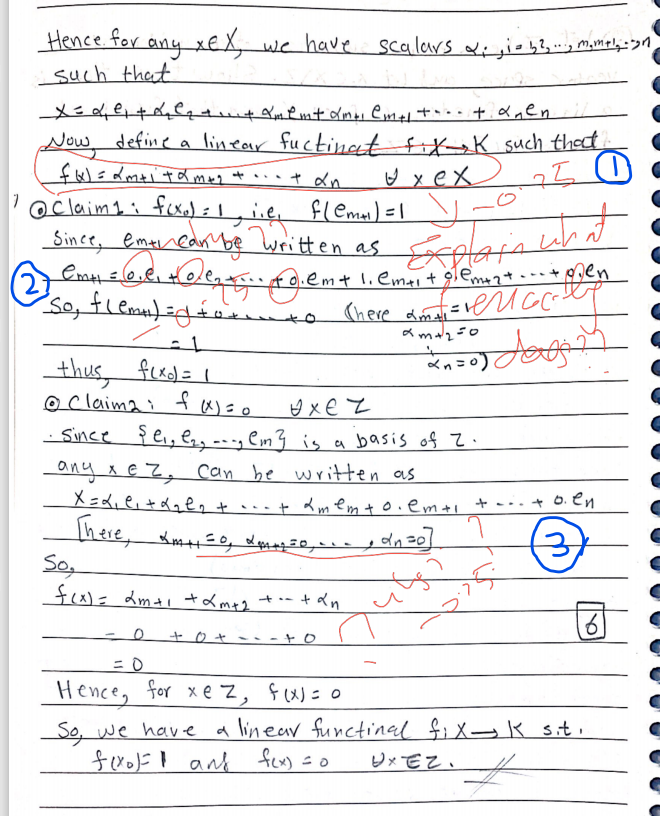 Hence for any x∈X, we have scalars αᵢ, i=1,2,..., m,m+1,...,n
such that
x = α₁e₁ + α₂e₂ + ... + αₘeₘ + αₘ₊₁ eₘ₊₁ + .... + αₙeₙ
Now, define a linear fuctinat f:X→K such that
f(x) = αₘ₊₁ + αₘ₊₂ + .... + αₙ ∀ x∈X
1
-0.75
⊙ Claim1: f(x₀) = 1, i.e, f(eₘ₊₁) = 1
Since, eₘ₊₁ can be written as
why??
Explain what
f exactly
does??
2
eₘ₊₁ = 0.e₁ + 0.e₂ + .... + 0.eₘ + 1.eₘ₊₁ + 0.eₘ₊₂ + .... + 0.eₙ
So, f(eₘ₊₁) = 1 + 0 + .... + 0 (here αₘ₊₁ = 1
αₘ₊₂ = 0
⋮
αₙ = 0)
= 1
thus, f(x₀) = 1
⊙ Claim2: f(x) = 0 ∀x∈Z
Since {e₁, e₂, ---, eₘ} is a basis of Z.
any x∈Z, can be written as
x = α₁e₁ + α₂e₂ + .... + αₘeₘ + 0.eₘ₊₁ + .... + 0.eₙ
[here, αₘ₊₁ = 0, αₘ₊₂ = 0, ..., αₙ = 0]
3
why?
So,
f(x) = αₘ₊₁ + αₘ₊₂ + ... + αₙ
= 0 + 0 + .... + 0
6
= 0
Hence, for x∈Z, f(x) = 0
So, we have a linear functinal f:X→K s.t.
f(x₀) = 1 and f(x) = 0 ∀x∈Z.